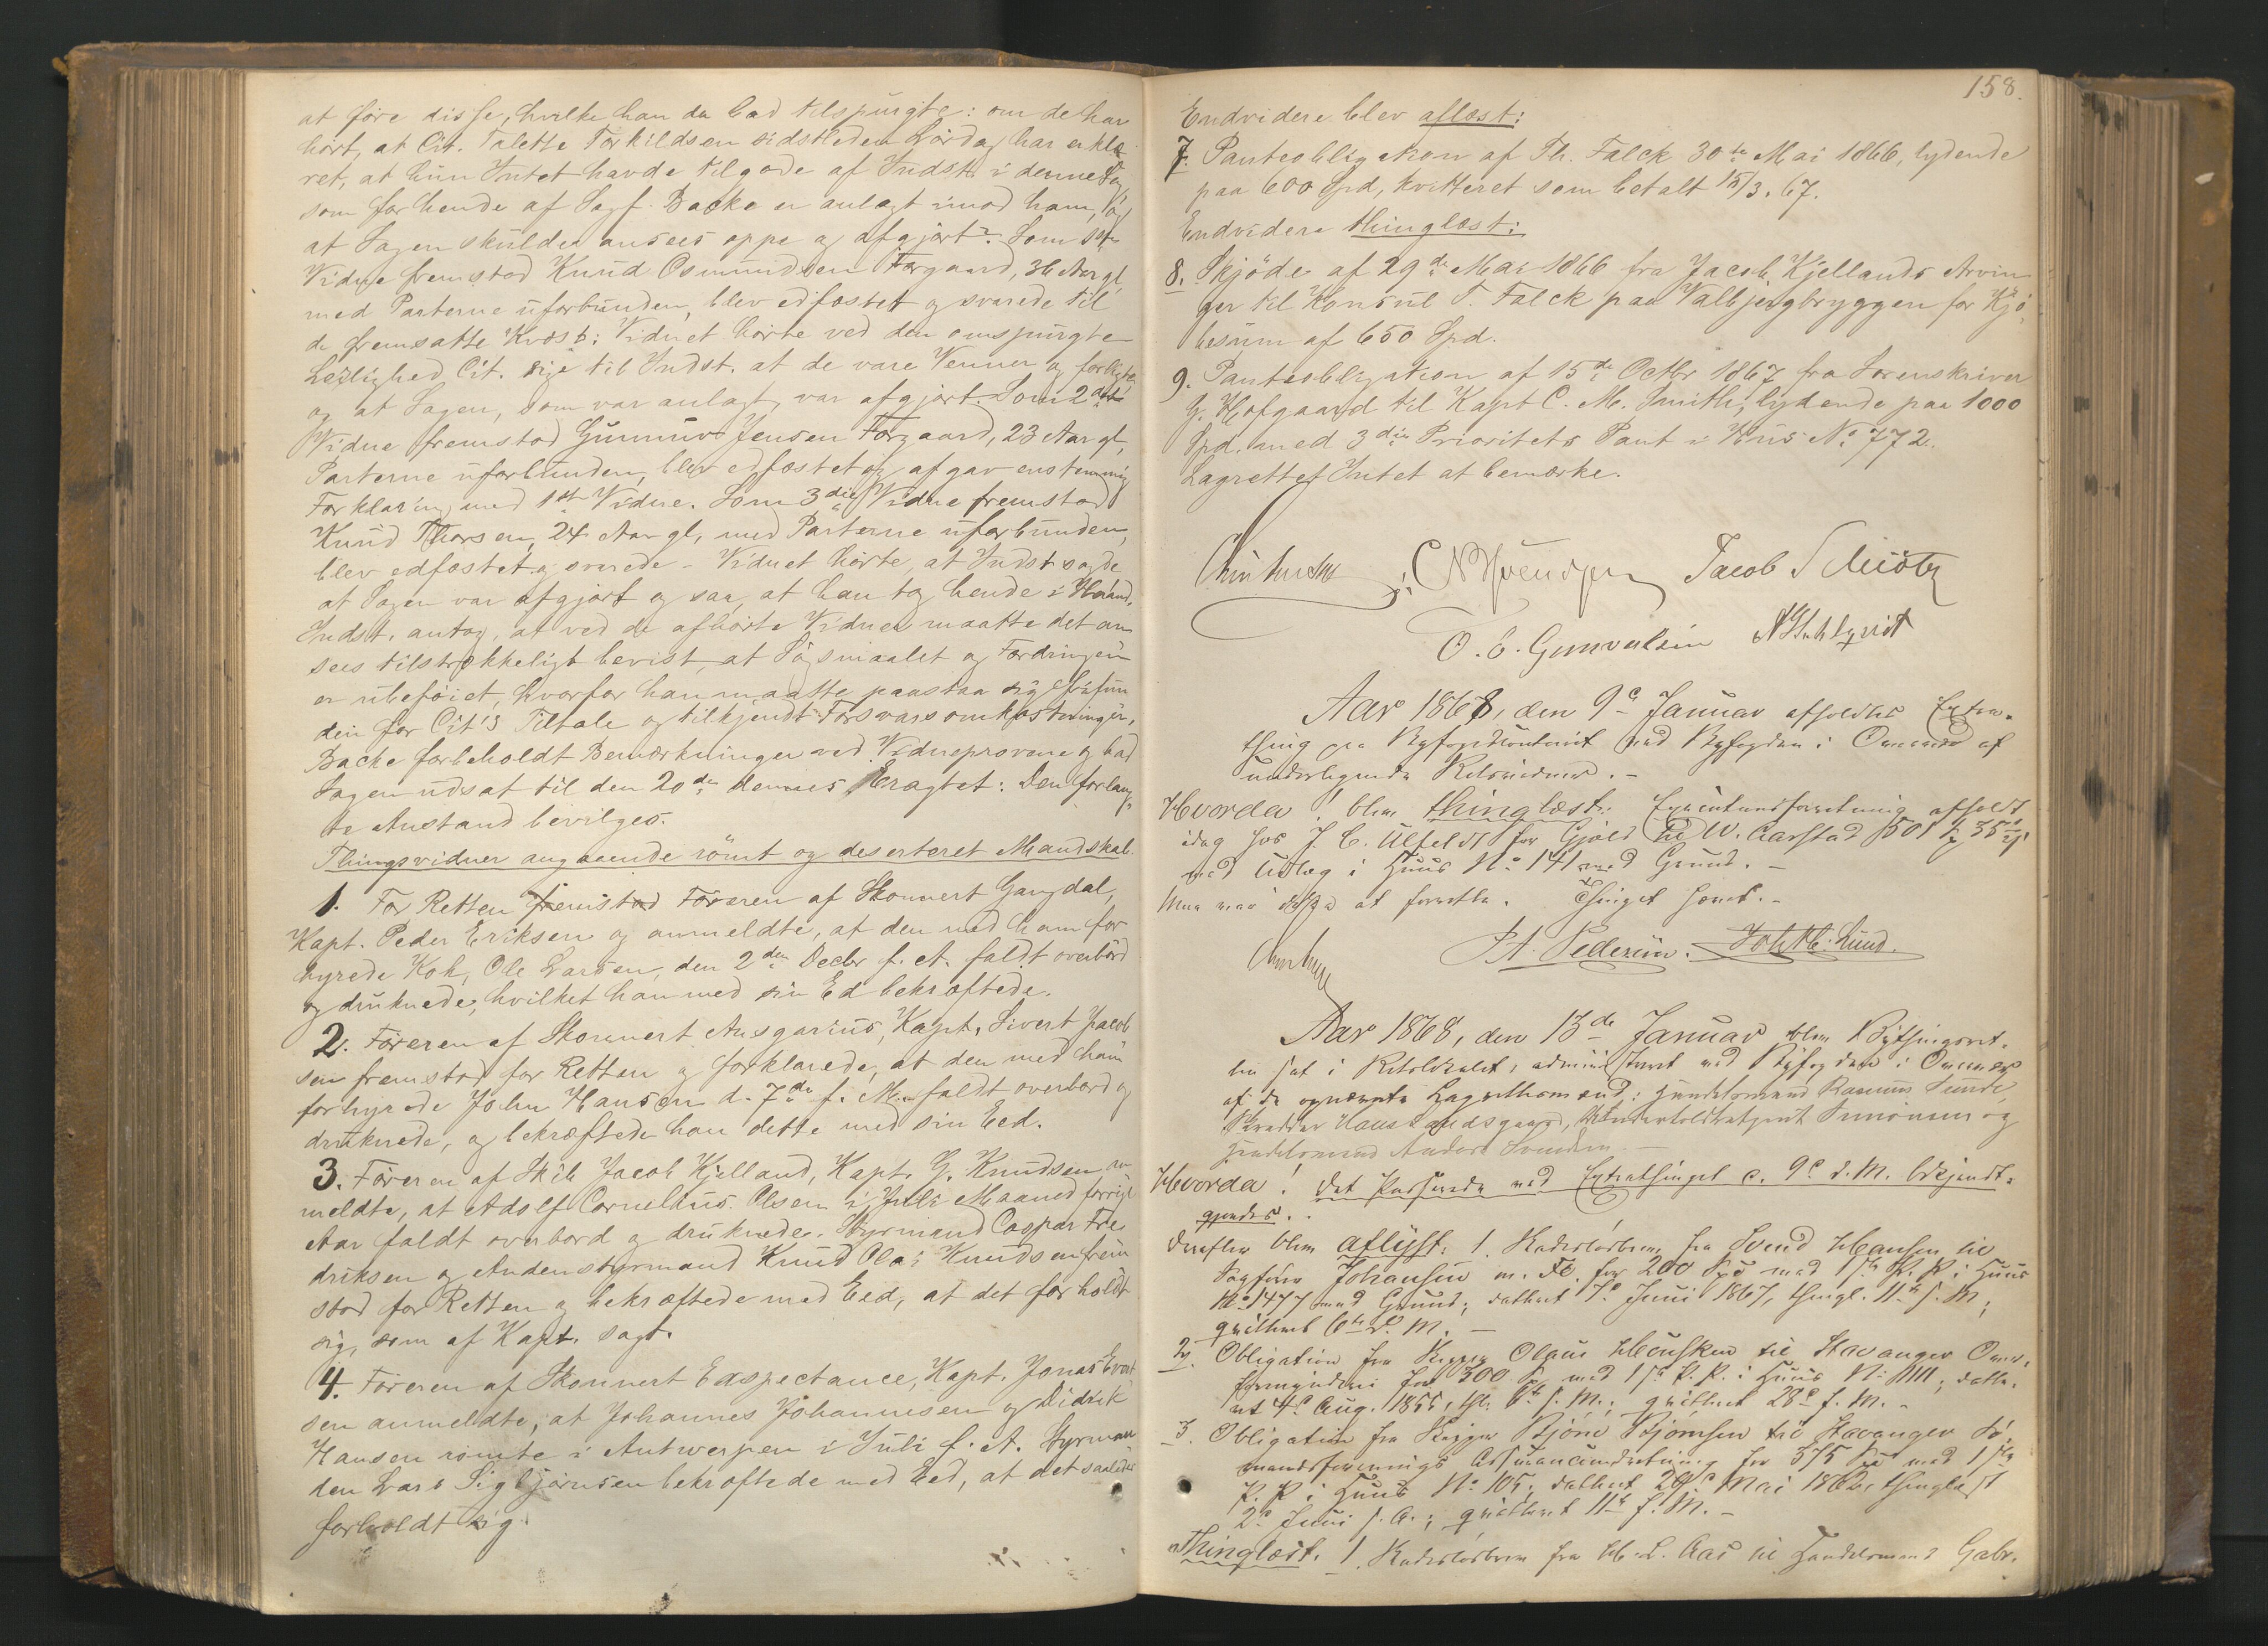 at føre disse, hvilke han da bad tilspurgte: om de har
hørt, at Cit. Talette Torkildsen sidstleden Lørdag har erklæ-
ret, at hun Intet havde tilgode af Indst. i denne Sag
som for hende af Sagf. Backe er anlagt imod ham, og
at Sagen skulde ansees oppe og afgjørt? Som 1ste
Vidne fremstod Knud Osmundsen Forgaard, 36 Aar gl,
med Parterne uforbunden, blev edfæstet og svarede til
de fremsatte Kvæst: Vidnet hørte ved den omspurgte
Leilighed Cit. sige til Indst. at de vare Venner og forligte
og at Sagen, som var anlagt, var afgjørt. Som 2det
Vidne fremstod Gunnuv Jensen Forgaard, 23 Aar gl,
Parterne uforbunden, blev edfæstet og afgav enstemmig
Forklaring med 1ste Vidne. Som 3die Vidne fremstod
Knud Thorsen, 24 Aar gl, med Parterne uforbunden,
blev edfæstet og svarede - Vidnet hørte, at Indst sagde
at Sagen var afgjørt og saa, at han tog hende i Haand.
Indst. antog, at ved de afhørte Vidner maatte det an-
sees tilstrækkeligt bevist, at Søgsmaalet og Fordringen
er ubeføiet, hvorfor han maatte paastaa sig frifun
den for Cit's Tiltale og tilkjendt Forsvarsomkostninger.
Backe forbeholdt Bemærkninger ved Vidneprovene og bad
Sagen udsat til den 20de dennes. Eragtet: Den forlang-
te Anstand bevilges.
Thingsvidner angaaende rømt og deserteret Mandskab.
1. For Retten fremstod Føreren af Skonnert Gangdal,
Kapt. Peder Eriksen og anmeldte, at den med ham for
hyrede Kok, Ole Larsen, den 2den Decbr f. A. faldt overbord
og druknede, hvilket han med sin Ed bekræftede.
2. Føreren af Skonnert Ansgarius, Kapt. Sivert Jacob
sen fremstod for Retten og forklarede, at den med ham
forhyrede John Hansen d. 7de f. M. faldt overbord og
druknede, og bekræftede han dette med sin Eed.
3. Føreren af Skib Jacob Kjelland, Kapt. G. Knudsen an
meldte, at Adolf Cornelius Olsen i Juli Maaned forrige
Aar faldt overbord og druknede. Styrmand Caspar Fre
driksen og Andenstyrmand Knud Olai Knudsen frem
stod for Retten og bekræftede med Eed, at det forholdt
sig, som af Kapt. sagt.
4. Føreren af Skonnert Expectance, Kapt. Jonas Evert
sen anmeldte, at Johannes Johannesen og Didrik
Hansen rømte i Antwerpen i Juli f. A. Styrman
den Lars Sigbjørnsen bekræftede med Eed, at det saaledes
forholdt sig.
158.
Endvidere blev aflæst:
7. Panteobligation af Th. Falck 30te Mai 1866, lydende
paa 600 Spd, kvitteret som betalt 15/3. 67.
Endvidere thinglæst:
8. Skjøde af 29de Mai 1866 fra Jacob Kjellands Arvin
ger til Konsul T. Falck paa Valbjergbryggen for Kjø-
besum af 650 Spd.
9. Panteobligation af 15de Octbr 1867 fra Sorenskriver
G. Hofgaard til Kapt C. M. Smith, lydende paa 1000
Spd. med 3die Prioritets Pant i Huus No 772.
Lagrettet Intet at bemærke.
Jacob S
O. C. Gunvalsen
Aar 1868, den 9e Januar afholdtes Extra-
thing paa Byfogedkontoiret ved Byfogden i Overvær af
underlegnede Retsvidner. -
Hvorda! blev thinglæst: Executionsforretning afholdt
idag hos J. C. Ulfeldt for Gjæld til W. Aarstad 501 35
med Udlæg i Huus No 141 med Grund. -
Mere var ikke at forrette. Thinget hævet. -
P. A. Pedersen. Joh. Lund.
Aar 1868, den 13de Januar blev Bythingsret-
ten sat i Retslokalet, administreret ved Byfogden i Overvær
af de opnævnte Lagrettsmænd: Handelsmand Rasmus Sunde,
Skrædder Landsgaard, Simonsen og
Handelsmand Anders Svendsen. -
Hvorda! det Passerede ved Extrathinget d. 9e d. M. bekjendt-
gjordes.
derefter blev aflyst: 1. Kaderløsbrev fra Svend Hansen til
Sagfører Johansen m. Fl. for 200 Spd med 1ste P. P. i Huus
No 1477 med Grund; dateret 7e Juni 1867, thingl. 11te s. M.;
qvitteret 6te d. M. -
2. Obligation fra Skipper Olaus til Stavanger Over-
formynderi for 300 Spd med 1ste P. P. i Huus No; date-
ret 4e Aug. 1855, thl. 6te s. M.; qvitteret 28e f. M. -
3. Obligation fra Skipper Bjørn Bjørnsen til Stavanger Sø-
mandsforenings Assuranceindretning for 375 Spd med 1ste
P. P. i Huus No 105; dateret 28e Mai 1862, thinglæst
2e Juni s. A.; qvitteret 11te f. M. -
Thinglæst. 1. Kaderløsbrev fra H. L. Aas til Handelsmand Gabr.